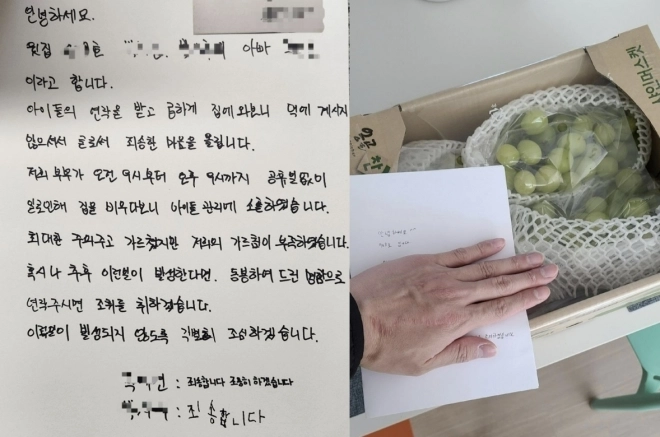 안녕하세요.
윗집 아빠
이라고 합니다.
아이들의 연락을 받고 급하게 집에 와보니 댁에 계시지
않으셔서 글로써 죄송한 마음을 올립니다.
저희 부부가 오전 9시부터 오후 9시까지 공휴일없이
일로인해 집을 비우다보니 아이들 관리에 소홀하였습니다.
최대한 주의주고 가르쳤지만 저희의 가르침이 부족하였습니다.
혹시나 추후 이런일이 발생한다면. 동봉하여 드린 명함으로
연락주시면 조취를 취하겠습니다.
이런일이 발생되지 않도록 각별히 조심하겠습니다.
: 죄송합니다 조용히 하겠습니다
: 죄송합니다
샤인머스켓